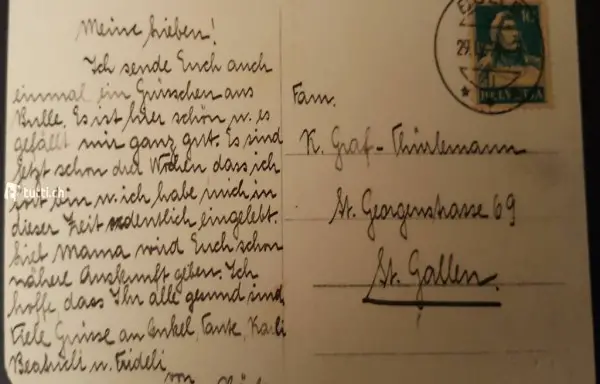 Meine Lieben!
Ich sende Euch auch
einmal ein Grüsschen aus
Bulle. Es ist hier schön u. es
gefällt mir ganz gut. Es sind
jetzt schon drei Wochen dass ich
fort bin u. ich habe mich in
dieser Zeit ordentlich eingelebt.
Mama wird Euch schon
nähere Auskunft geben. Ich
hoffe, dass Ihr alle gesund sind
Viele Grüsse an Onkel, Tante, Karli
u. Frideli
von
Fam.
K. Graf-Thürlemann
St. Georgenstrasse 69
St. Gallen.
29
10
HELVETIA
tutti.ch